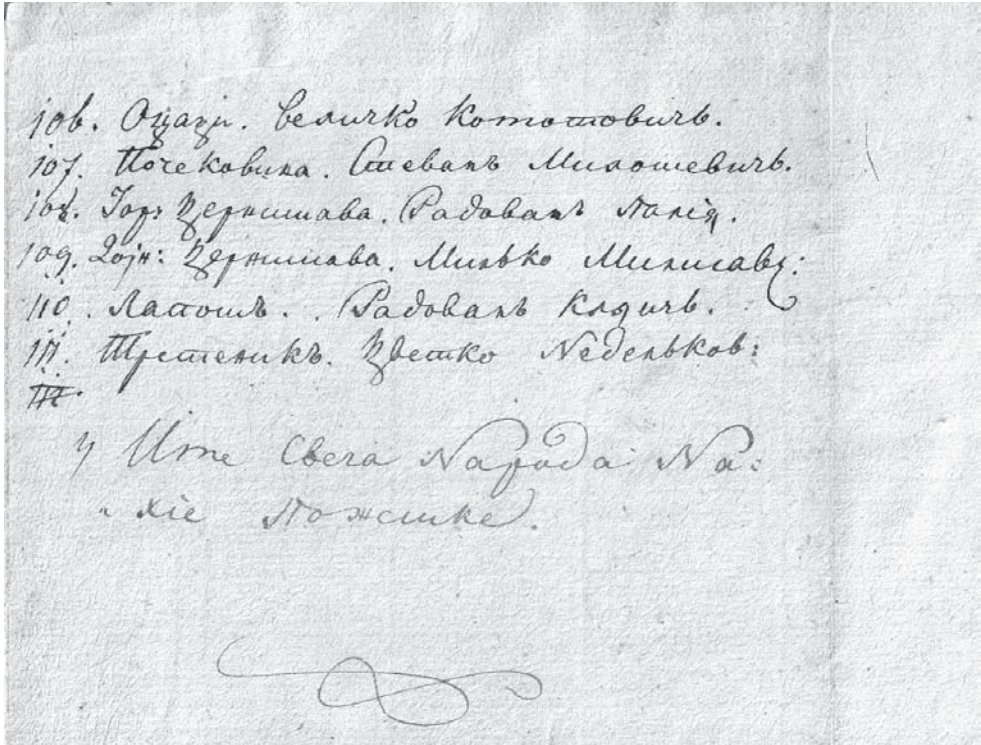 106. Оџаци. Величко Кототовичь.
107. Почековина. Стеванъ Милошевичь.
108. Гор: Црнишава. Радованъ
109. Долн: Црнишава. Милько Милисавц:
110. Лапошъ. Радованъ
111. Трстеникъ. Цветко Недельков:
у Име Свега Народа На:
хіе Пожешке.